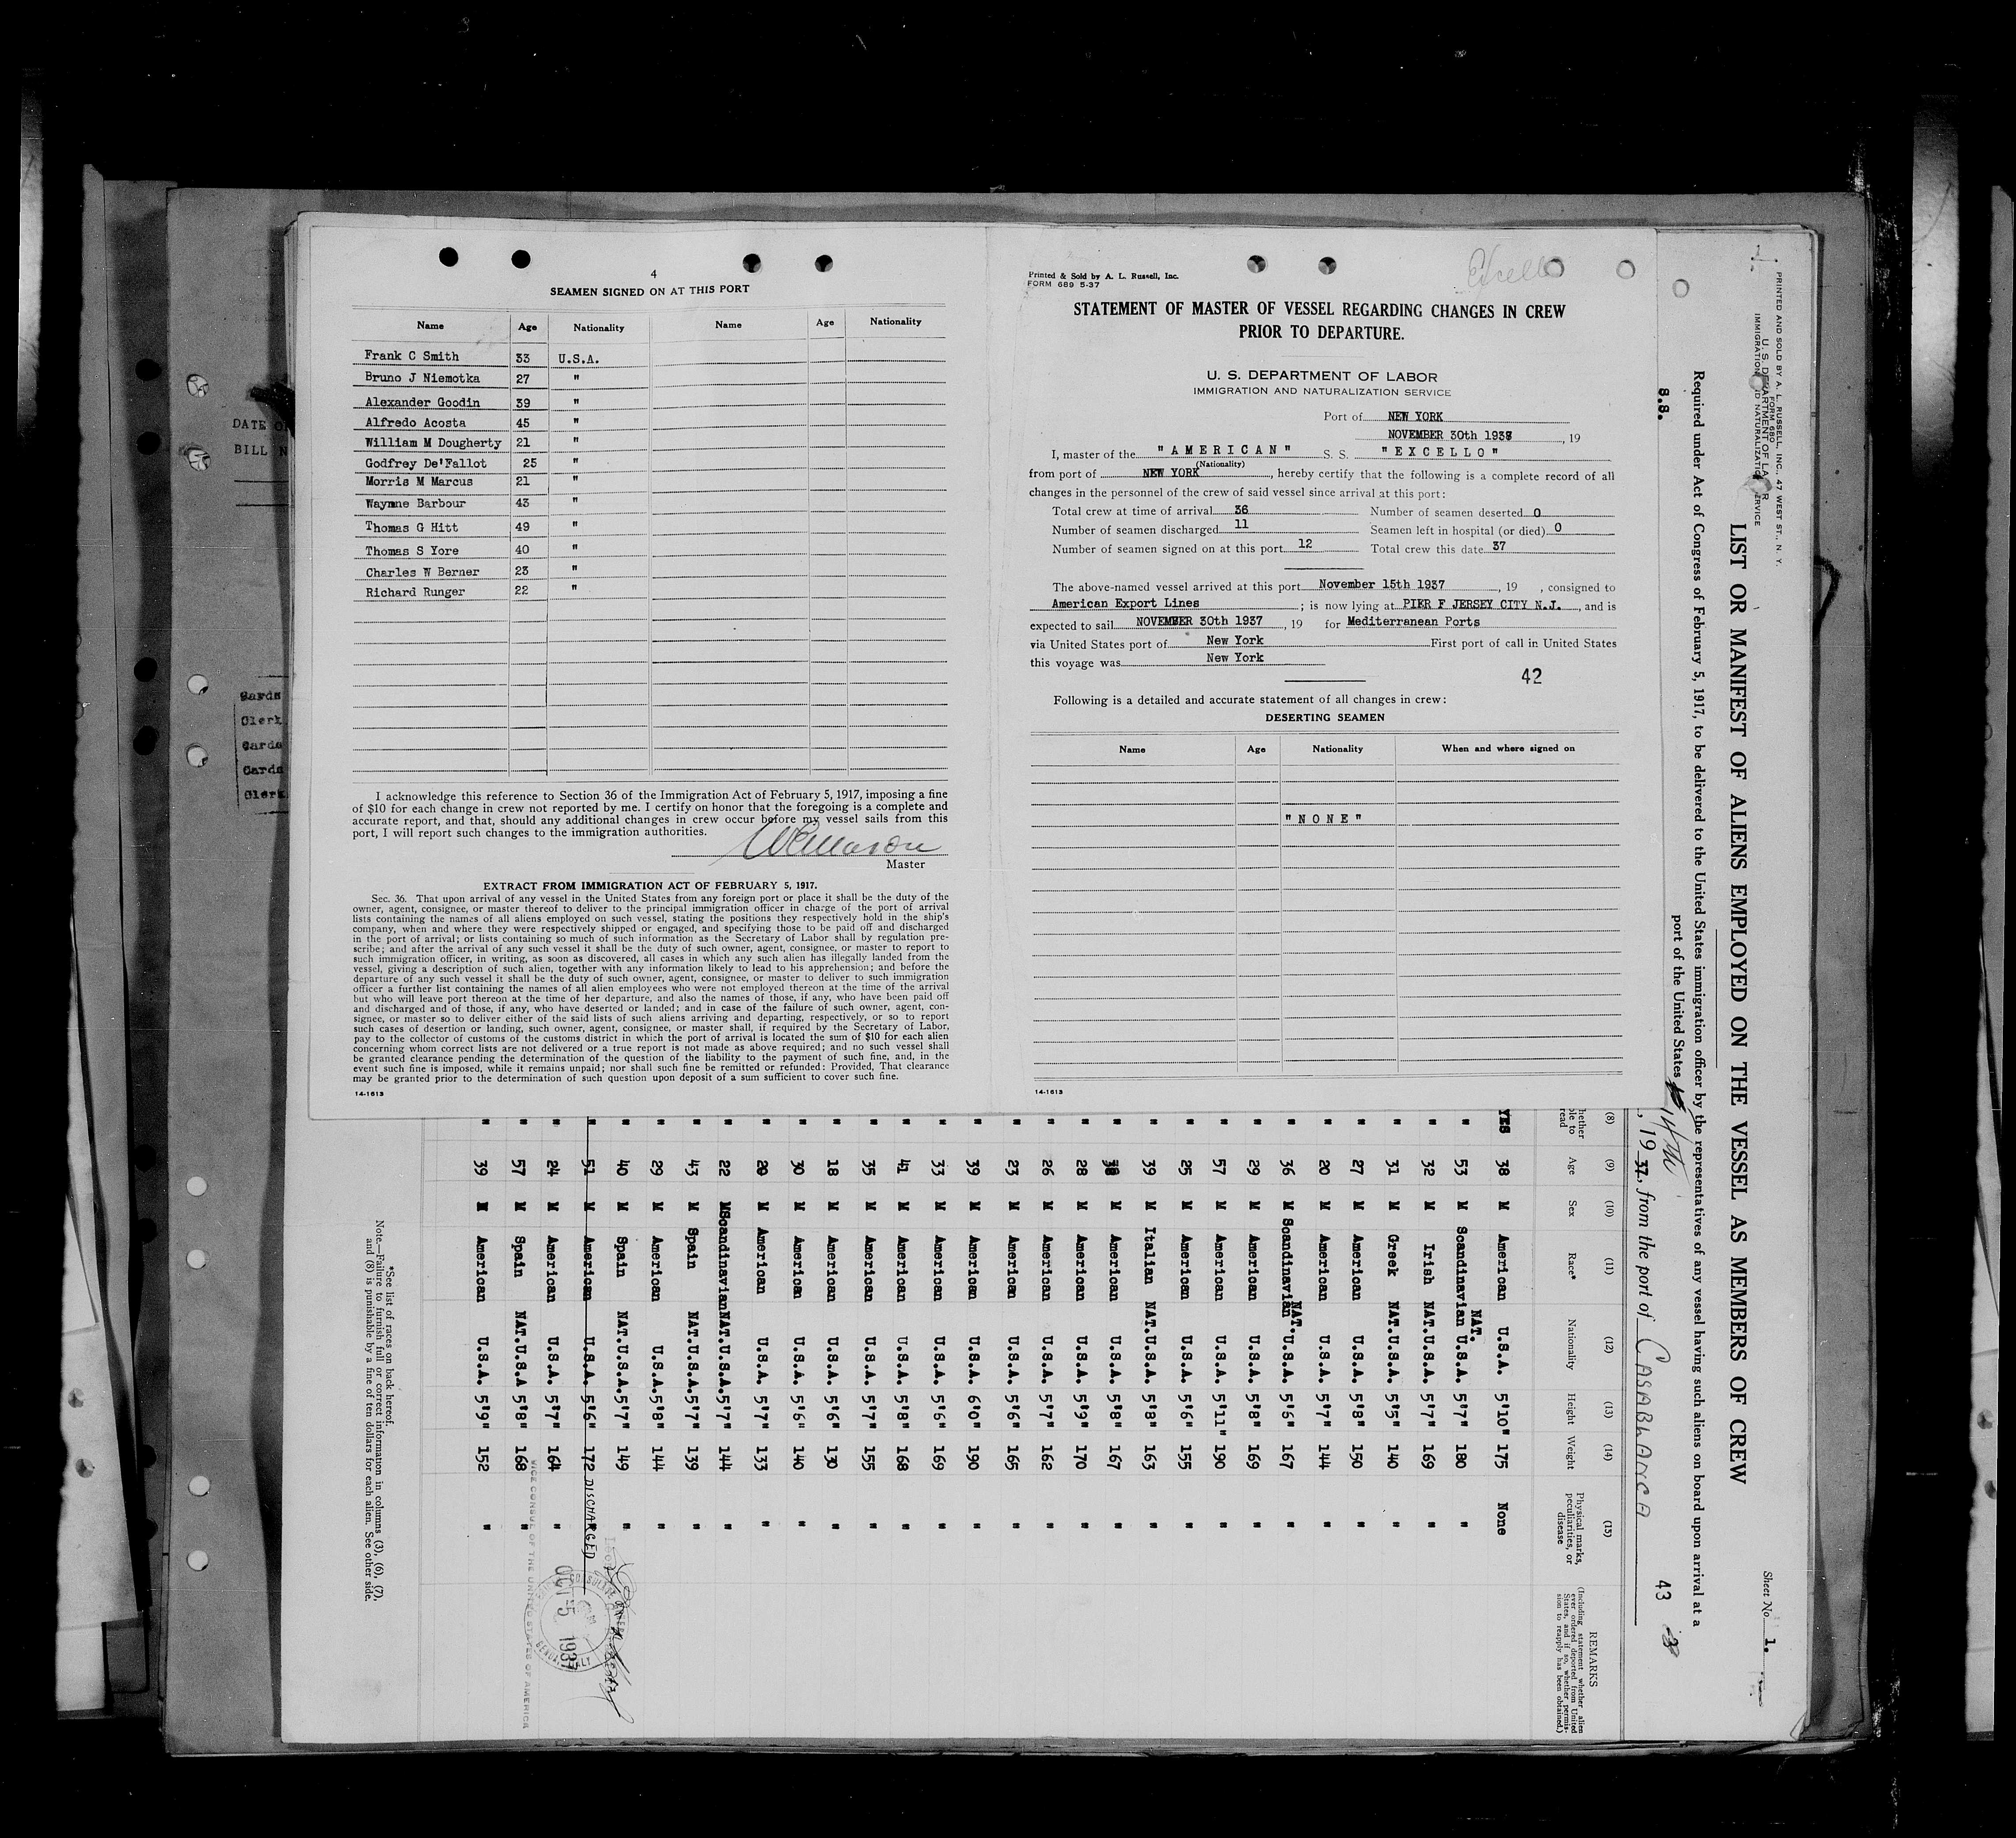 4
SEAMEN SIGNED ON AT THIS PORT
Name Age Nationality Name Age Nationality
Frank C Smith 33 U.S.A.
Bruno J Niemotka 27 "
Alexander Goodin 39 "
Alfredo Acosta 45 "
William M Dougherty 21 "
Godfrey De'Fallot 25 "
Morris M Marcus 21 "
Waynne Barbour 43 "
Thomas G Hitt 49 "
Thomas S Yore 40 "
Charles W Berner 23 "
Richard Runger 22 "
I acknowledge this reference to Section 36 of the Immigration Act of February 5, 1917, imposing a fine
of $10 for each change in crew not reported by me. I certify on honor that the foregoing is a complete and
accurate report, and that, should any additional changes in crew occur before my vessel sails from this
port, I will report such changes to the immigration authorities.
Master
EXTRACT FROM IMMIGRATION ACT OF FEBRUARY 5, 1917.
Sec. 36. That upon arrival of any vessel in the United States from any foreign port or place it shall be the duty of the
owner, agent, consignee, or master thereof to deliver to the principal immigration officer in charge of the port of arrival
lists containing the names of all aliens employed on such vessel, stating the positions they respectively hold in the ship's
company, when and where they were respectively shipped or engaged, and specifying those to be paid off and discharged
in the port of arrival; or lists containing so much of such information as the Secretary of Labor shall by regulation pre-
scribe; and after the arrival of any such vessel it shall be the duty of such owner, agent, consignee, or master to report to
such immigration officer, in writing, as soon as discovered, all cases in which any such alien has illegally landed from the
vessel, giving a description of such alien, together with any information likely to lead to his apprehension; and before the
departure of any such vessel it shall be the duty of such owner, agent, consignee, or master to deliver to such immigration
officer a further list containing the names of all alien employees who were not employed thereon at the time of the arrival
but who will leave port thereon at the time of her departure, and also the names of those, if any, who have been paid off
and discharged and of those, if any, who have deserted or landed; and in case of the failure of such owner, agent, con-
signee, or master so to deliver either of the said lists of such aliens arriving and departing, respectively, or so to report
such cases of desertion or landing, such owner, agent, consignee, or master shall, if required by the Secretary of Labor,
pay to the collector of customs of the customs district in which the port of arrival is located the sum of $10 for each alien
concerning whom correct lists are not delivered or a true report is not made as above required; and no such vessel shall
be granted clearance pending the determination of the question of the liability to the payment of such fine, and, in the
event such fine is imposed, while it remains unpaid; nor shall such fine be remitted or refunded: Provided, That clearance
may be granted prior to the determination of such question upon deposit of a sum sufficient to cover such fine.
14-1613
Excello
Printed & Sold by A. L. Russell, Inc.
FORM 689 5-37
STATEMENT OF MASTER OF VESSEL REGARDING CHANGES IN CREW
PRIOR TO DEPARTURE.
U. S. DEPARTMENT OF LABOR
IMMIGRATION AND NATURALIZATION SERVICE
Port of NEW YORK
NOVEMBER 30th 1937, 19
I, master of the "AMERICAN" S. S. "EXCELLO"
(Nationality)
from port of NEW YORK, hereby certify that the following is a complete record of all
changes in the personnel of the crew of said vessel since arrival at this port:
Total crew at time of arrival 36 Number of seamen deserted 0
Number of seamen discharged 11 Seamen left in hospital (or died) 0
Number of seamen signed on at this port 12 Total crew this date 37
The above-named vessel arrived at this port November 15th 1937, 19 , consigned to
American Export Lines ; is now lying at PIER F JERSEY CITY N.J., and is
expected to sail NOVEMBER 30th 1937, 19 for Mediterranean Ports
via United States port of New York First port of call in United States
this voyage was New York
42
Following is a detailed and accurate statement of all changes in crew:
DESERTING SEAMEN
Name Age Nationality When and where signed on
"NONE"
14-1613
DATE O
BILL N
Cards
Clerk
Cards
Cards
Clerk
PRINTED AND SOLD BY A. L. RUSSELL, INC., 47 WEST ST., N. Y.
FORM 680
U. S. DEPARTMENT OF LABOR
IMMIGRATION AND NATURALIZATION SERVICE
Sheet No. 1.
LIST OR MANIFEST OF ALIENS EMPLOYED ON THE VESSEL AS MEMBERS OF CREW
Required under Act of Congress of February 5, 1917, to be delivered to the United States immigration officer by the representatives of any vessel having such aliens on board upon arrival at a
port of the United States
S.S.
14th, 1937, from the port of CASABLANCA
43
(8) (9) (10) (11) (12) (13) (14) (15)
hether ble to read Age Sex Race* Nationality Height Weight Physical marks, peculiarities, or disease
REMARKS
(Including statement whether alien ever ordered deported from United States, and if so, whether permission to reapply has been obtained.)
YES 38 M American U.S.A. 5'10" 175 None
" 53 M Scandinavian NAT. U.S.A. 5'7" 180 "
" 32 M Irish NAT.U.S.A. 5'7" 169 "
" 31 M Greek NAT.U.S.A. 5'5" 140 "
" 27 M American U.S.A. 5'8" 150 "
" 20 M American U.S.A. 5'7" 144 "
" 36 M Scandinavian NAT. U.S.A. 5'6" 167 "
" 29 M American U.S.A. 5'8" 169 "
" 57 M American U.S.A. 5'11" 190 "
" 25 M American U.S.A. 5'6" 155 "
" 39 M Italian NAT.U.S.A. 5'8" 163 "
" M American U.S.A. 5'8" 167 "
" 28 M American U.S.A. 5'9" 170 "
" 26 M American U.S.A. 5'7" 162 "
" 23 M American U.S.A. 5'6" 165 "
" 39 M American U.S.A. 6'0" 190 "
" 33 M American U.S.A. 5'6" 169 "
" 41 M American U.S.A. 5'8" 168 "
" 35 M American U.S.A. 5'7" 155 "
" 18 M American U.S.A. 5'6" 130 "
" 30 M American U.S.A. 5'6" 140 "
" 20 M American U.S.A. 5'7" 133 "
" 22 M Scandinavian NAT.U.S.A. 5'7" 144 "
" 43 M Spain NAT.U.S.A. 5'7" 139 "
" 29 M American U.S.A. 5'8" 144 "
" 40 M Spain NAT.U.S.A. 5'7" 149 "
" 51 M American U.S.A. 5'6" 172 DISCHARGED
" 24 M American U.S.A. 5'7" 164 "
" 57 M Spain NAT.U.S.A 5'8" 168 "
" 39 M American U.S.A. 5'9" 152 "
OCT 5 1937
VICE CONSUL OF THE UNITED STATES OF AMERICA
*See list of races on back hereof.
Note.—Failure to furnish full or correct information in columns (3), (6), (7),
and (8) is punishable by a fine of ten dollars for each alien. See other side.